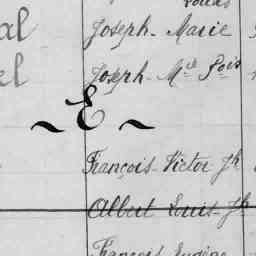 Louis
al Joseph-Marie
el Joseph-Mie Fois
~ E ~
François-Victor-Jh
Albert Louis-Jh
François Eugène